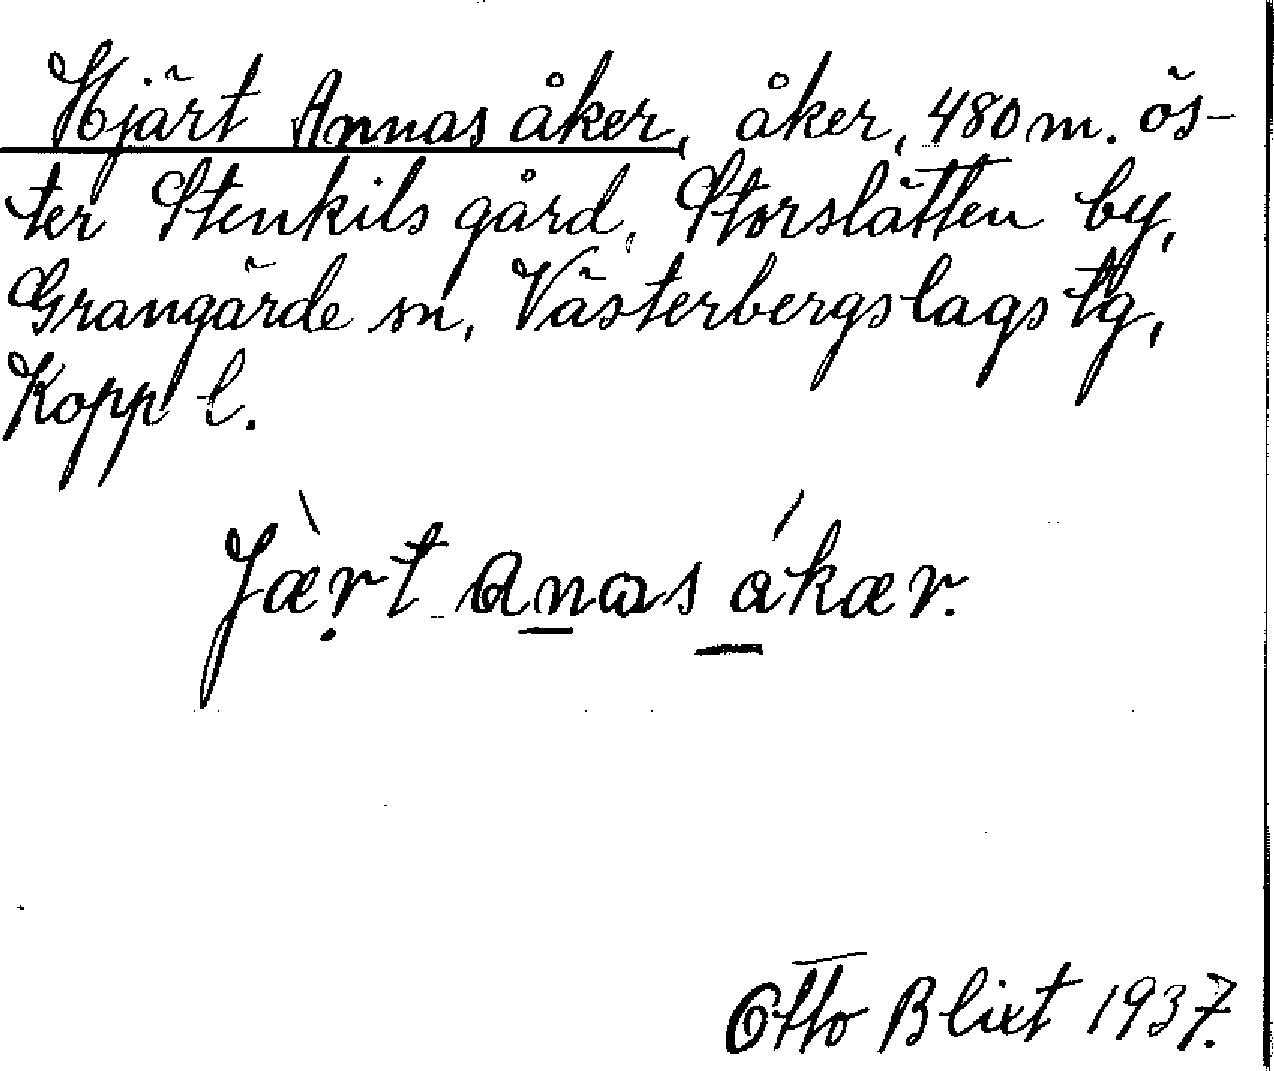 Hjärt Annas åker, åker, 480 m. ös-
ter Stenkils gård, Storslätten by,
Grangärde sn, Västerbergslags tg,
Kopp l.
Jæ̀rt anas ákær.
Otto Blixt 1937.